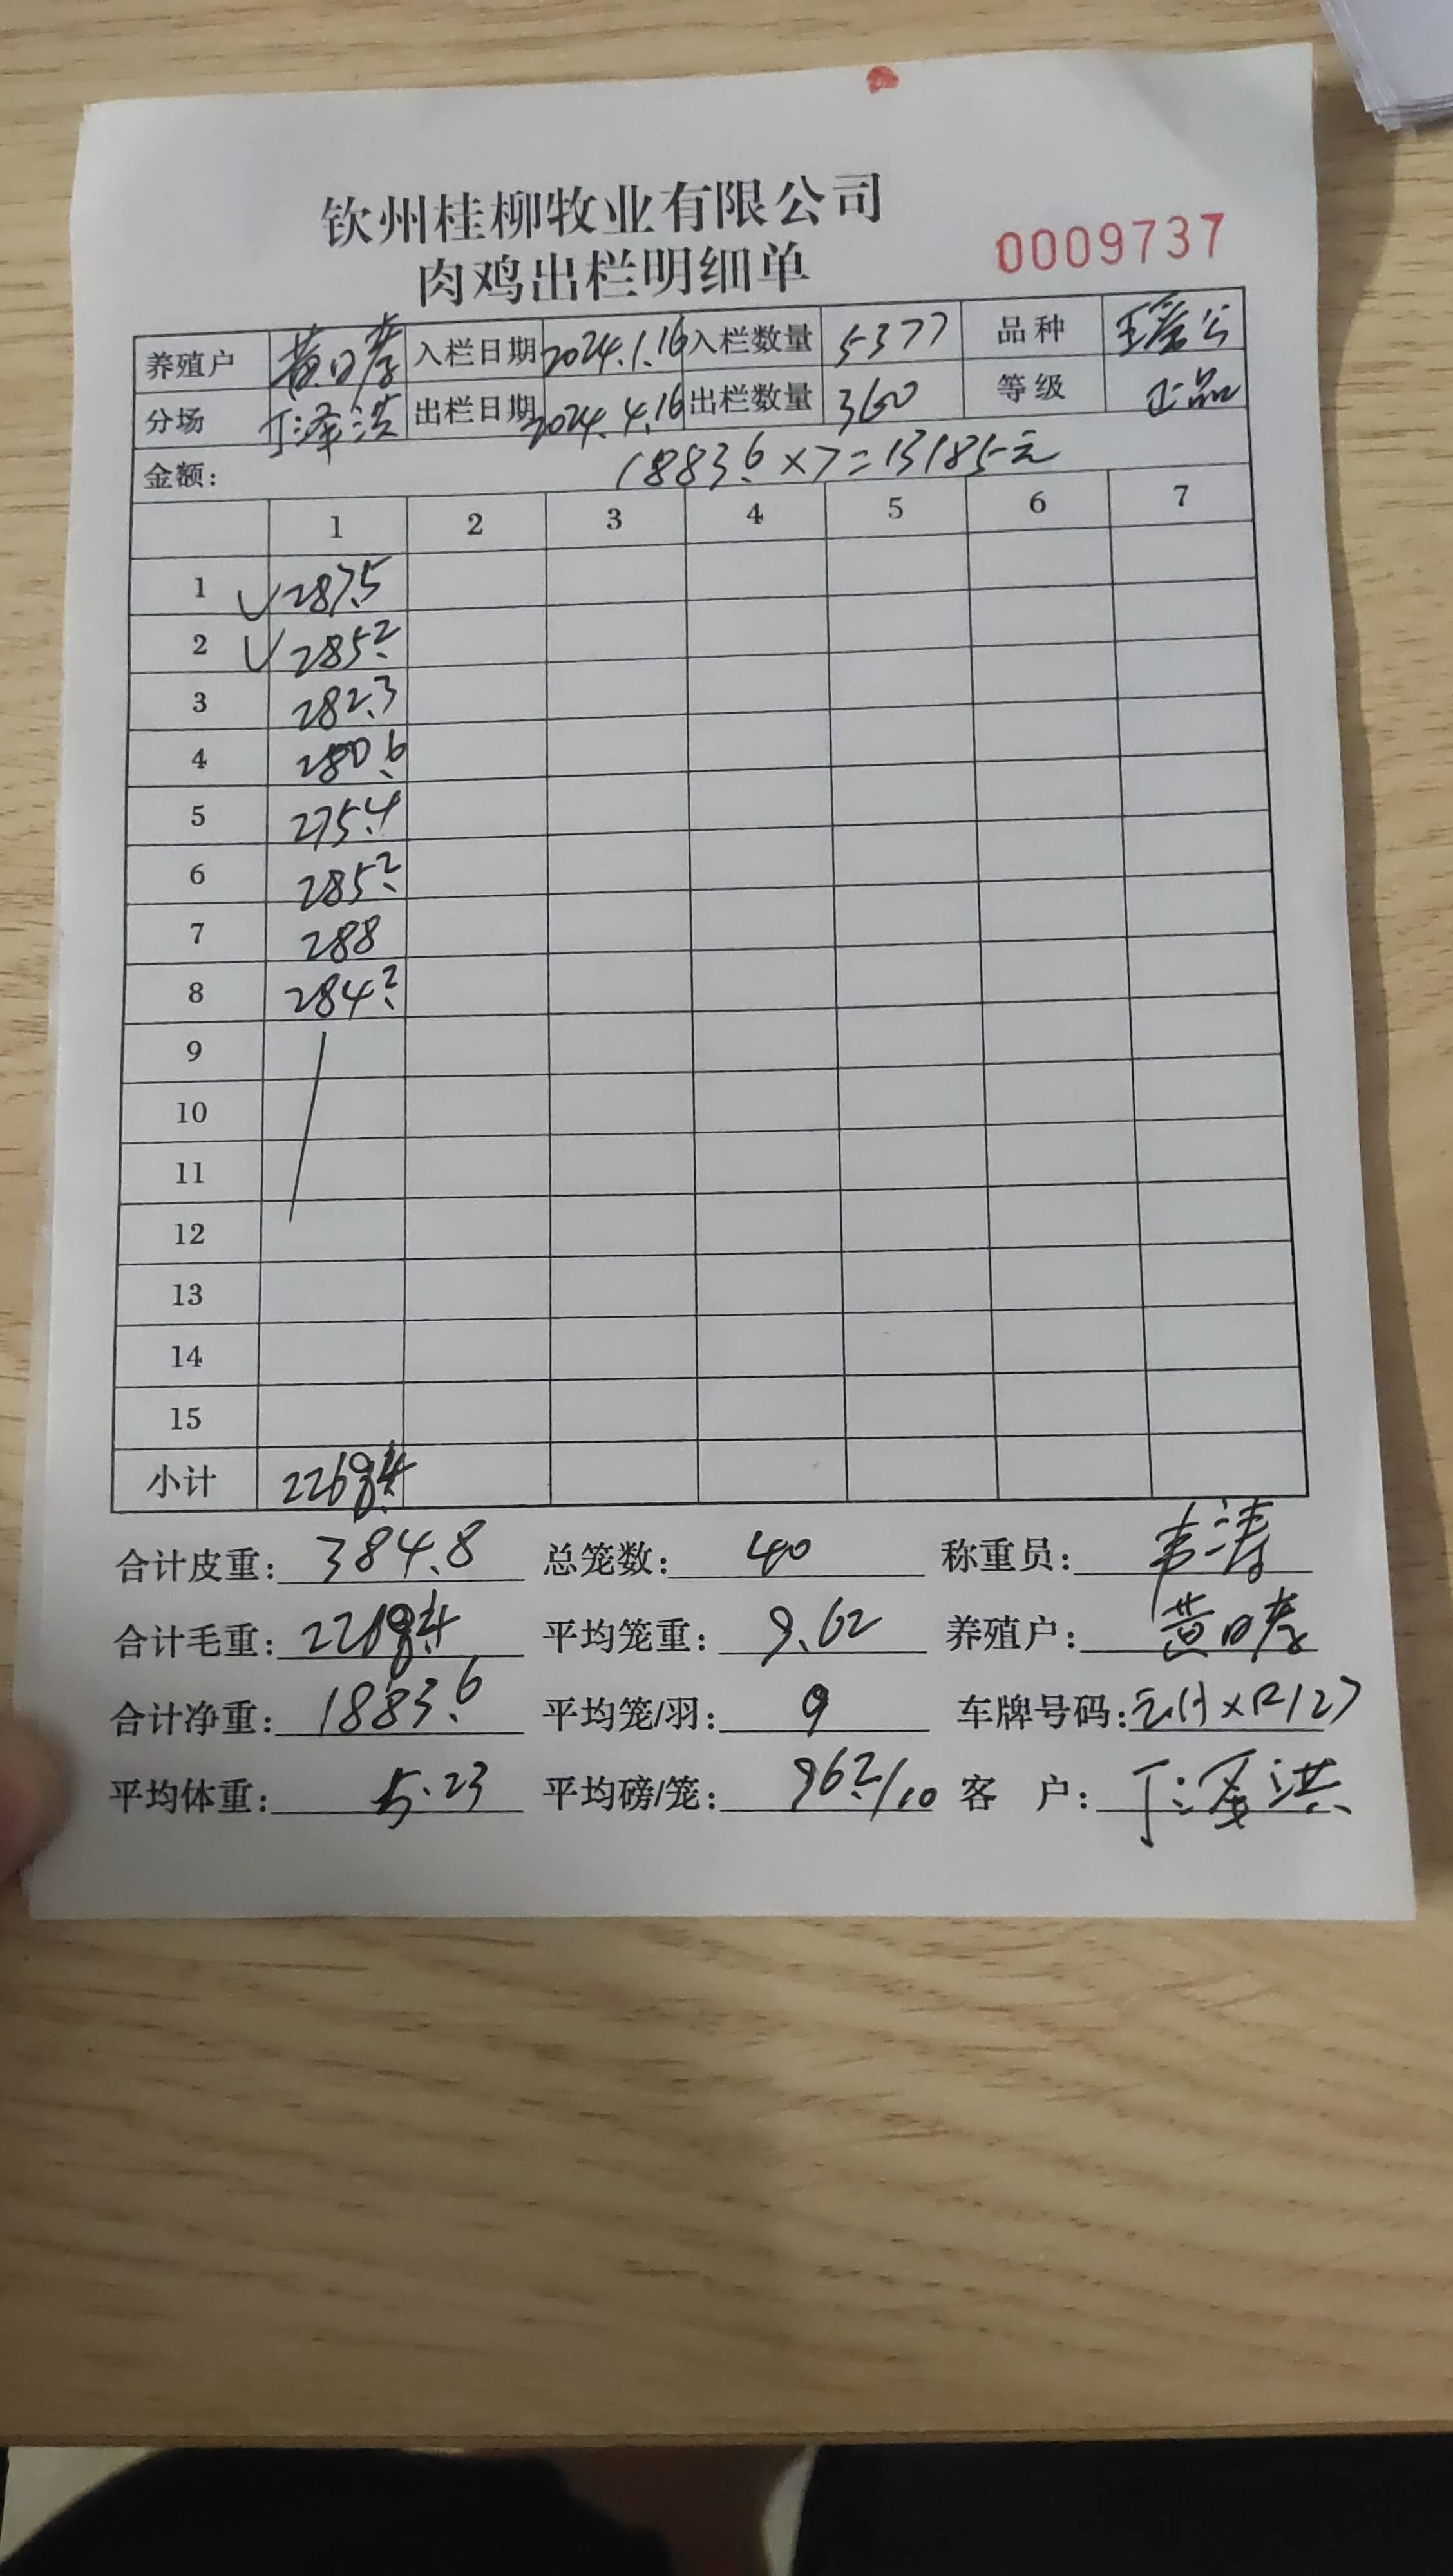 钦州桂柳牧业有限公司
肉鸡出栏明细单
0009737
养殖户 黄日孝 入栏日期 2024.1.16 入栏数量 5377 品种
分场 丁泽洪 出栏日期 2024.4.16 出栏数量 360 等级 正品
金额: 1883.6×7=13185元
1 2 3 4 5 6 7
1 √ 287.5
2 √ 285.2
3 282.3
4 280.6
5 275.4
6 285.2
7 288
8 284.2
9
10
11
12
13
14
15
小计 2268.4
合计皮重: 384.8 总笼数: 40 称重员: 韦涛
合计毛重: 2268.4 平均笼重: 9.62 养殖户: 黄日孝
合计净重: 1883.6 平均笼/羽: 9 车牌号码:
平均体重: 5.23 平均磅/笼: 962/10 客 户: 丁泽洪